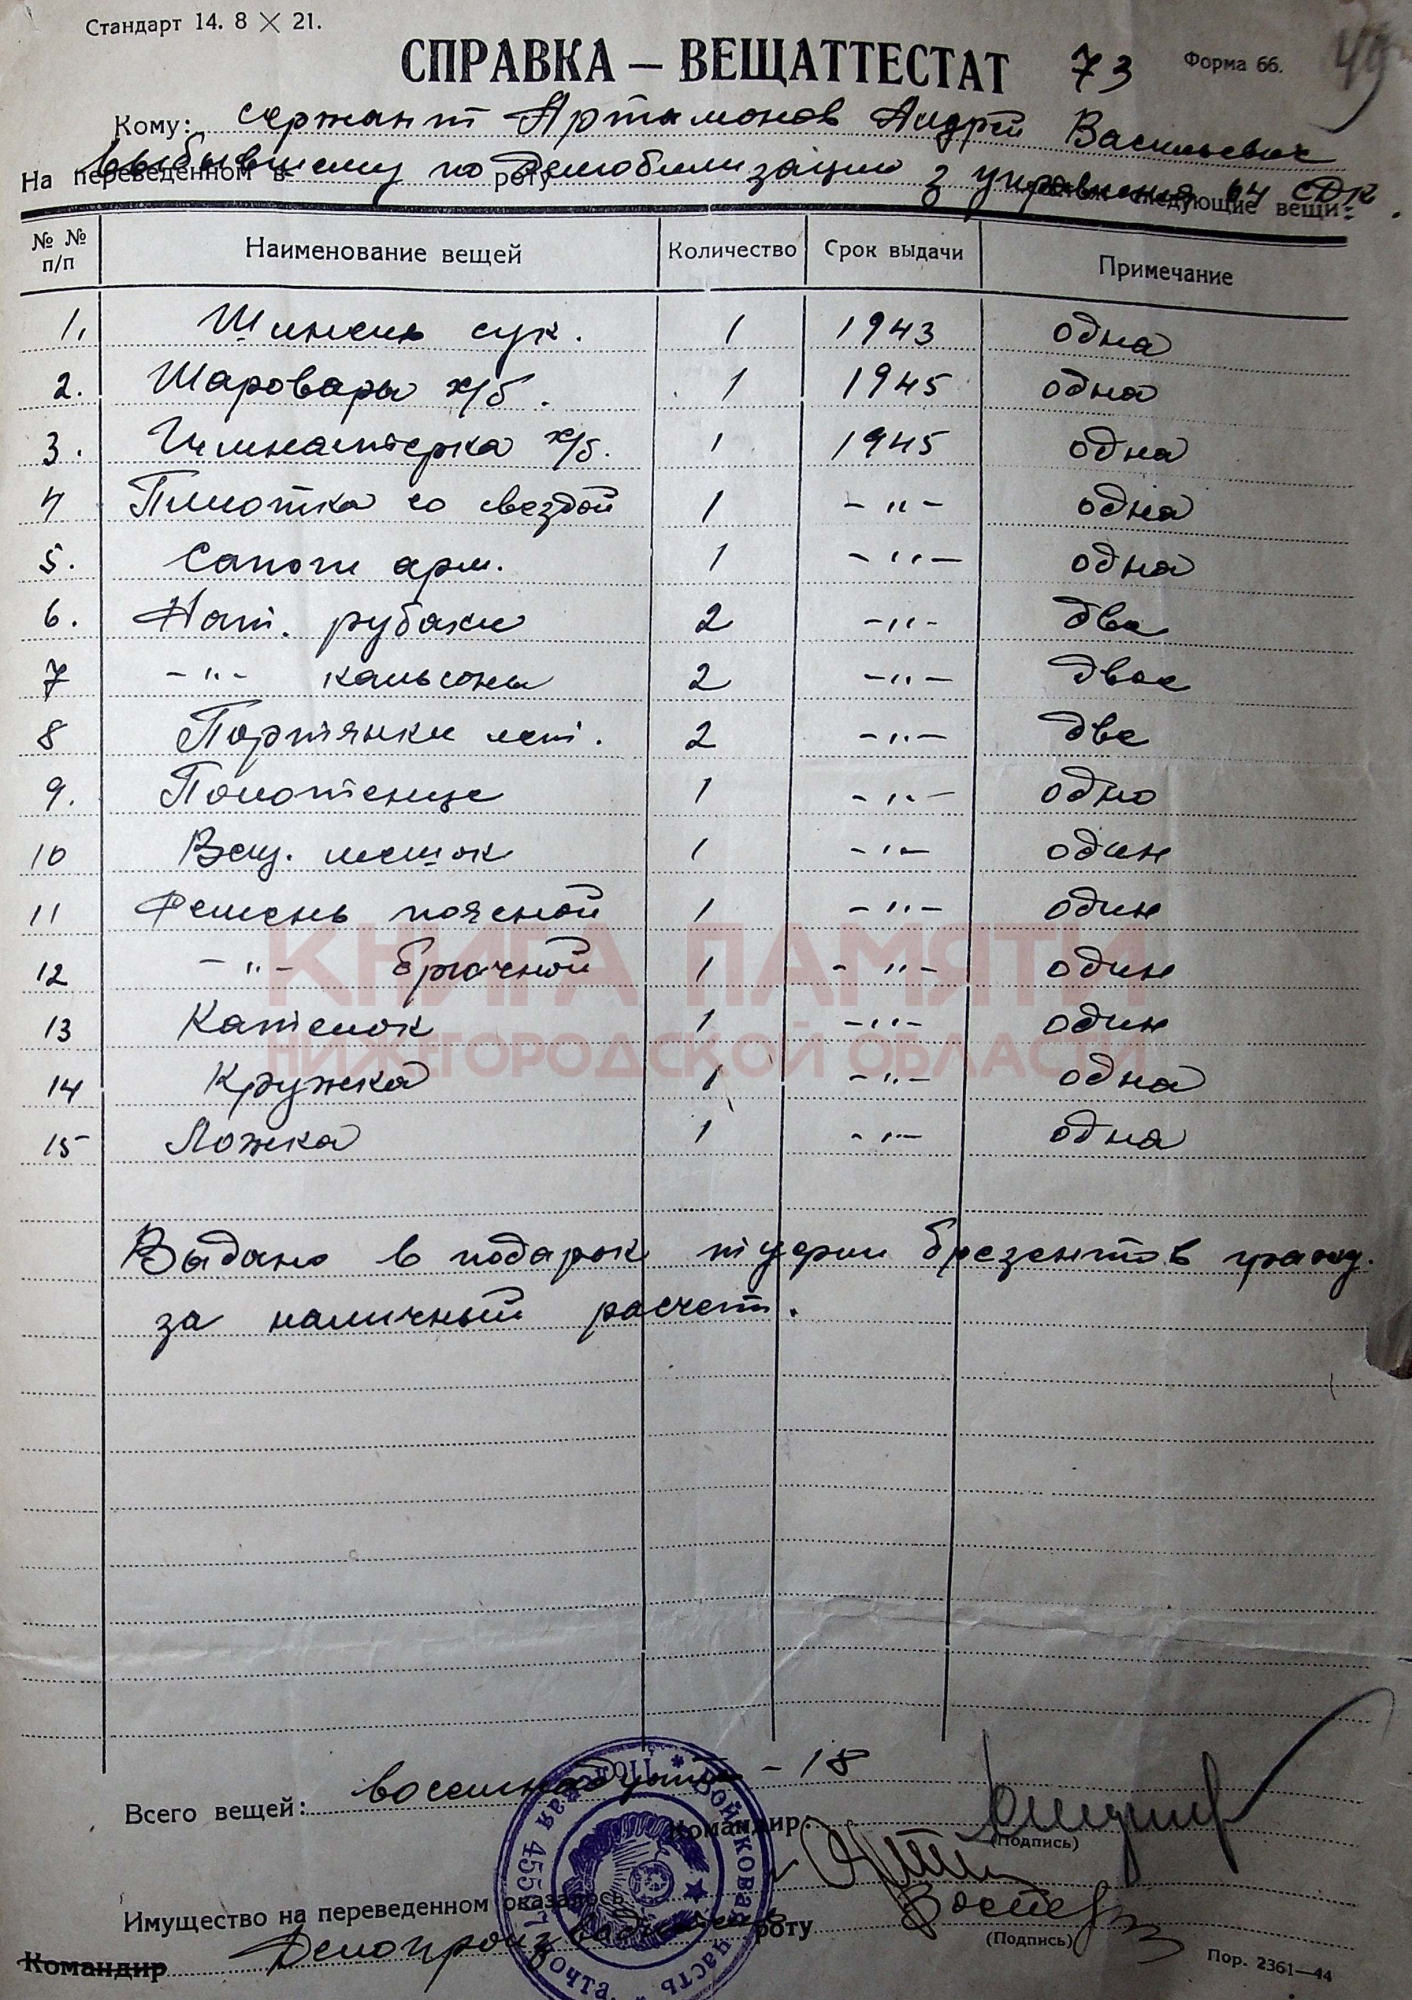 Стандарт 14. 8 × 21.
СПРАВКА — ВЕЩАТТЕСТАТ 73 Форма 66. 49
Кому: сержант Артамонов Андрей Васильевич
На переведенном в роту следующие вещи:
выбывшему по демобилизации з управления 64 СДК.
№ № п/п Наименование вещей Количество Срок выдачи Примечание
1. Шинель сук. 1 1943 одна
2. Шаровары х/б. 1 1945 одна
3. Гимнастерка х/б. 1 1945 одна
4 Пилотка со звездой 1 -"- одна
5. Сапоги арм. 1 -"- одна
6. Нат. рубахи 2 -"- две
7 -"- кальсоны 2 -"- двое
8 Портянки лет. 2 -"- две
9. Полотенце 1 -"- одно
10 Вещ. мешок 1 -"- один
11 Ремень поясной 1 -"- один
12 -"- брючной 1 -"- один
13 Котелок 1 -"- один
14 Кружка 1 -"- одна
15 Ложка 1 -"- одна
КНИГА ПАМЯТИ
НИЖЕГОРОДСКОЙ ОБЛАСТИ
Выдано в подарок туфли брезентов. гражд.
за наличный расчет.
Всего вещей: восемнадцать - 18
Командир:
(Подпись)
Имущество на переведенном оказалось роту
(Подпись)
Командир Делопроизводитель
Пор. 2361—44
Войсковая часть * Полевая почта